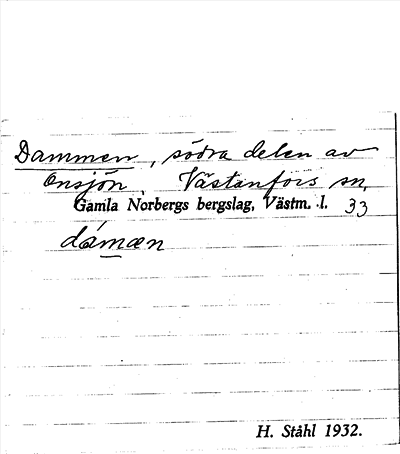 Dammen, södra delen av
Onsjön, Västanfors sn,
Gamla Norbergs bergslag, Västm. l. 33
dámæn
H. Ståhl 1932.